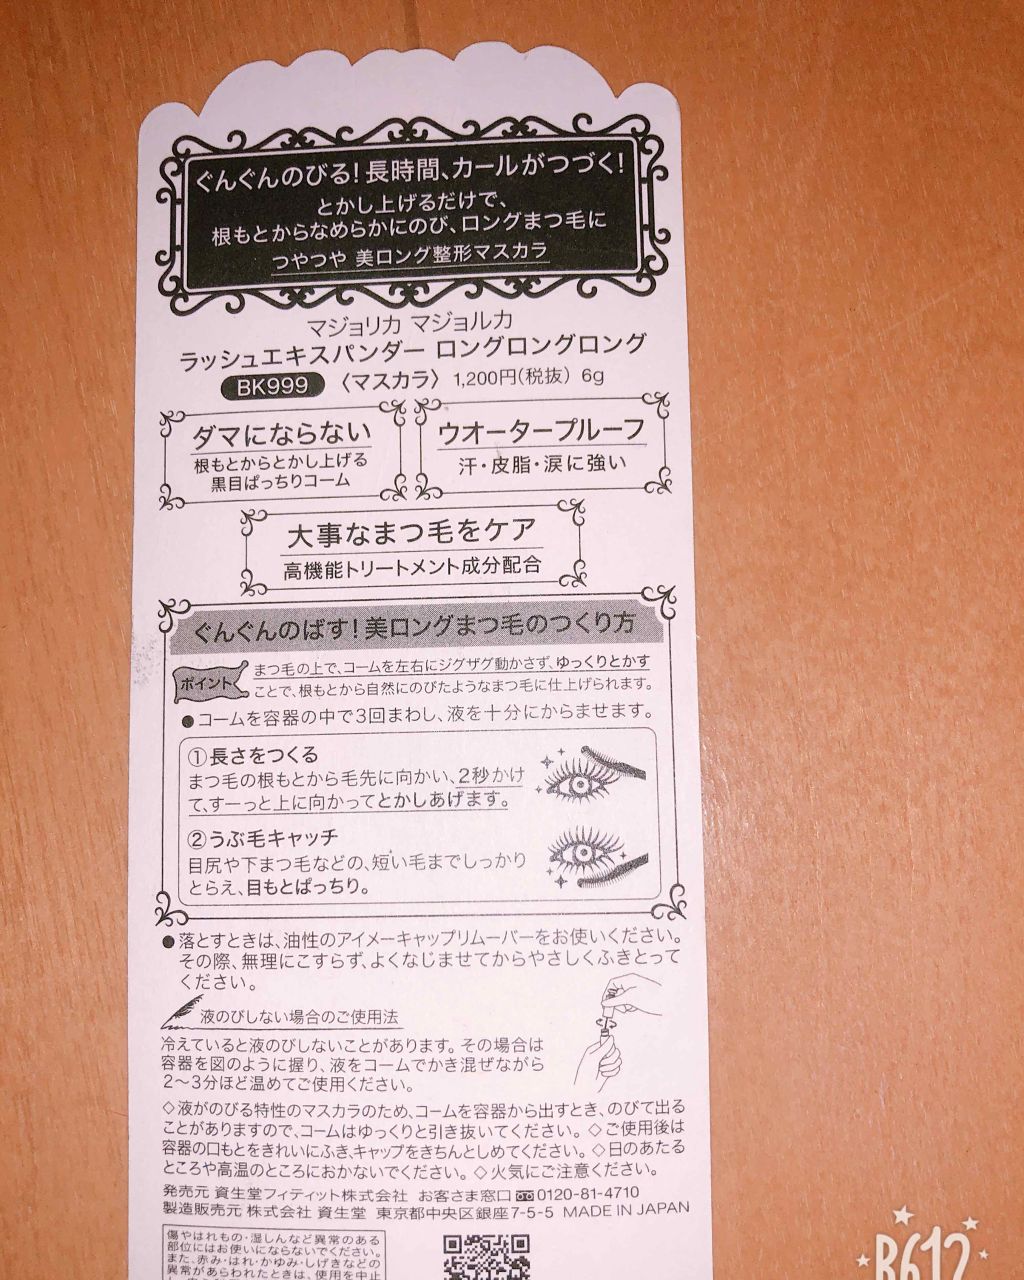 ぐんぐんのびる!長時間、カールがつづく!
とかし上げるだけで、
根もとからなめらかにのび、ロングまつ毛に
つやつや 美ロング整形マスカラ
マジョリカ マジョルカ
ラッシュエキスパンダー ロングロングロング
BK999 〈マスカラ〉 1,200円(税抜) 6g
ダマにならない
根もとからとかし上げる
黒目ぱっちりコーム
ウオータープルーフ
汗・皮脂・涙に強い
大事なまつ毛をケア
高機能トリートメント成分配合
ぐんぐんのばす!美ロングまつ毛のつくり方
ポイント
まつ毛の上で、コームを左右にジグザグ動かさず、ゆっくりとかす
ことで、根もとから自然にのびたようなまつ毛に仕上げられます。
●コームを容器の中で3回まわし、液を十分にからませます。
①長さをつくる
まつ毛の根もとから毛先に向かい、2秒かけ
て、すーっと上に向かってとかしあげます。
②うぶ毛キャッチ
目尻や下まつ毛などの、短い毛までしっかり
とらえ、目もとぱっちり。
●落とすときは、油性のアイメーキャップリムーバーをお使いください。
その際、無理にこすらず、よくなじませてからやさしくふきとって
ください。
液のびしない場合のご使用法
冷えていると液のびしないことがあります。その場合は
容器を図のように握り、液をコームでかき混ぜながら
2〜3分ほど温めてご使用ください。
◇液がのびる特性のマスカラのため、コームを容器から出すとき、のびて出る
ことがありますので、コームはゆっくりと引き抜いてください。◇ご使用後は
容器の口もとをきれいにふき、キャップをきちんとしめてください。◇日のあたる
ところや高温のところにおかないでください。◇火気にご注意ください。
発売元 資生堂フィティット株式会社 お客さま窓口 0120-81-4710
製造販売元 株式会社 資生堂 東京都中央区銀座7-5-5 MADE IN JAPAN
傷やはれもの・湿しんなど異常のある
部位にはお使いにならないでください。
また、赤み・はれ・かゆみ・しげきなどの
異常があらわれたときは、使用を中止
B612